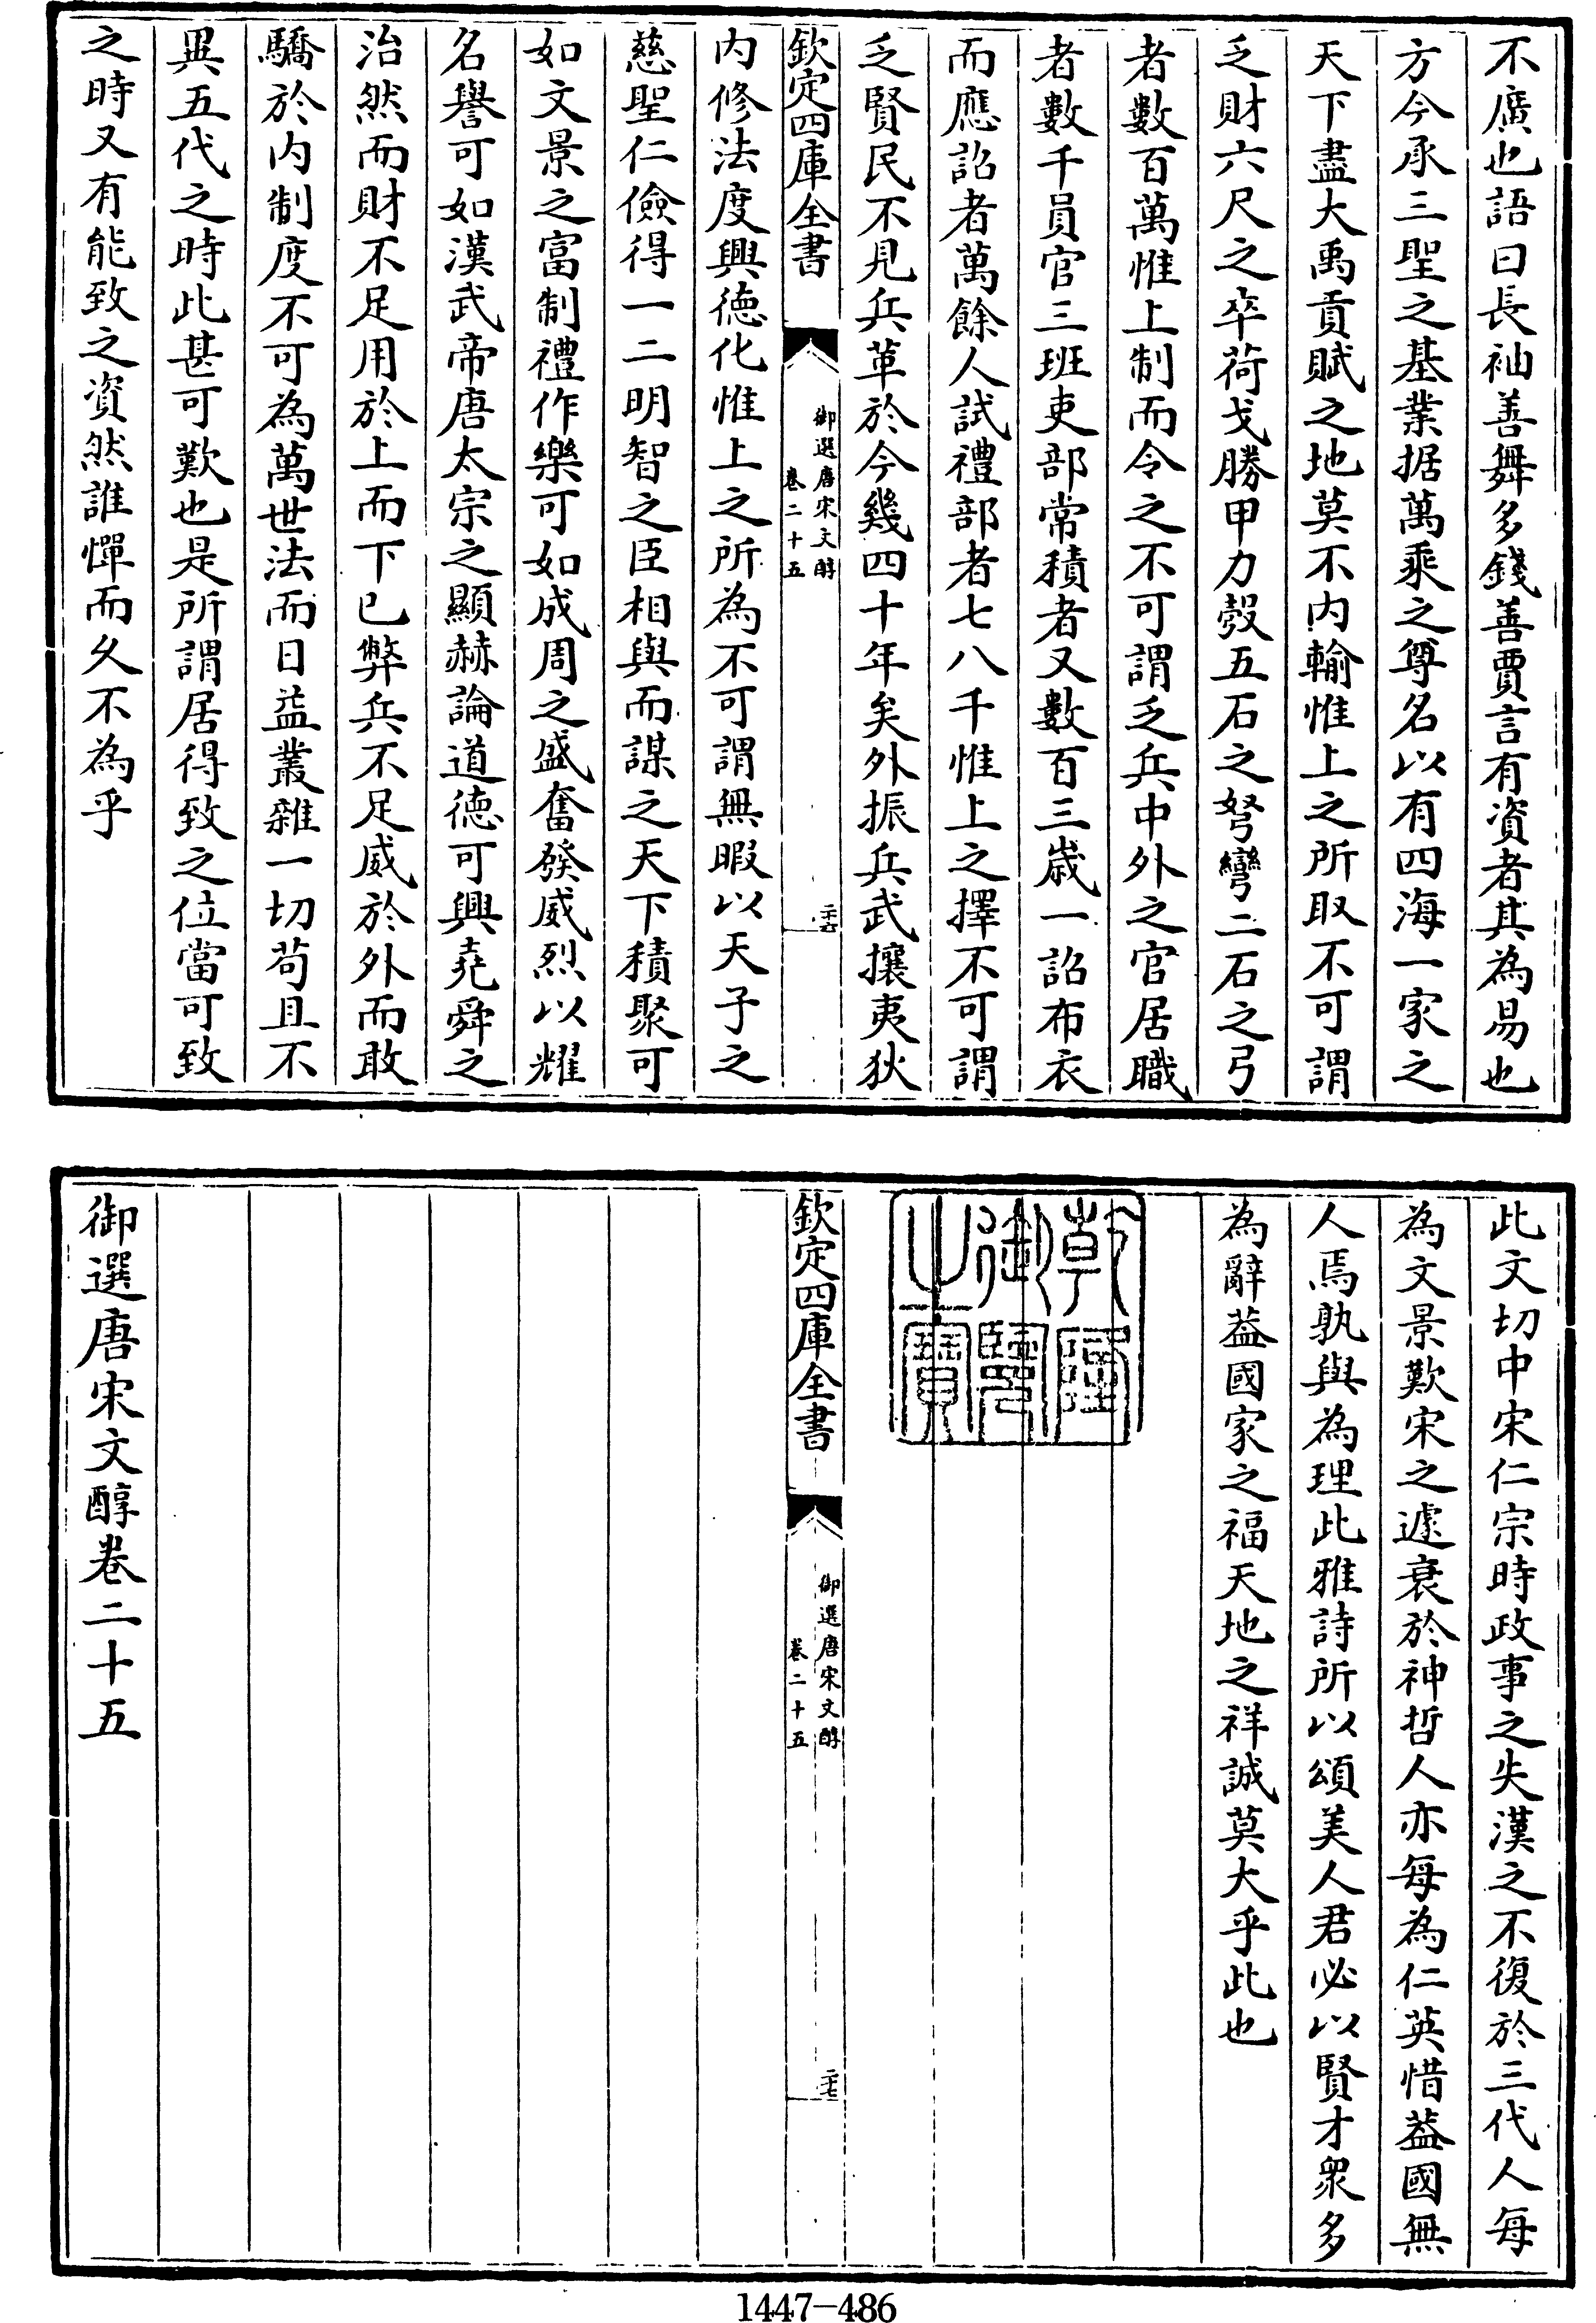 不廣也語曰長袖善舞多錢善賈言有資者其為易也
方今承三聖之基業据萬乘之尊名以有四海一家之
天下盡大禹貢賦之地莫不内輸惟上之所取不可謂
乏財六尺之卒荷戈勝甲力彀五石之弩彎二石之弓
者數百萬惟上制而令之不可謂乏兵中外之官居職
者數千員官三班吏部常積者又數百三歲一詔布衣
而應詔者萬餘人試禮部者七八千惟上之擇不可謂
乏賢民不見兵革於今幾四十年矣外振兵武攘夷狄
欽定四庫全書
御選唐宋文醇
卷二十五
二十六
内修法度興德化惟上之所為不可謂無暇以天子之
慈聖仁儉得一二明智之臣相與而謀之天下積聚可
如文景之富制禮作樂可如成周之盛奮發威烈以耀
名譽可如漢武帝唐太宗之顯赫論道德可興堯舜之
治然而財不足用於上而下已弊兵不足威於外而敢
驕於内制度不可為萬世法而日益叢雜一切苟且不
異五代之時此甚可歎也是所謂居得致之位當可致
之時又有能致之資然誰憚而久不為乎
此文切中宋仁宗時政事之失漢之不復於三代人每
為文景歎宋之遽衰於神哲人亦每為仁英惜葢國無
人焉孰與為理此雅詩所以頌美人君必以賢才衆多
為辭葢國家之福天地之祥誠莫大乎此也
乾隆
御覽
之寶
欽定四庫全書
御選唐宋文醇
卷二十五
二十七
御選唐宋文醇卷二十五
1447-486